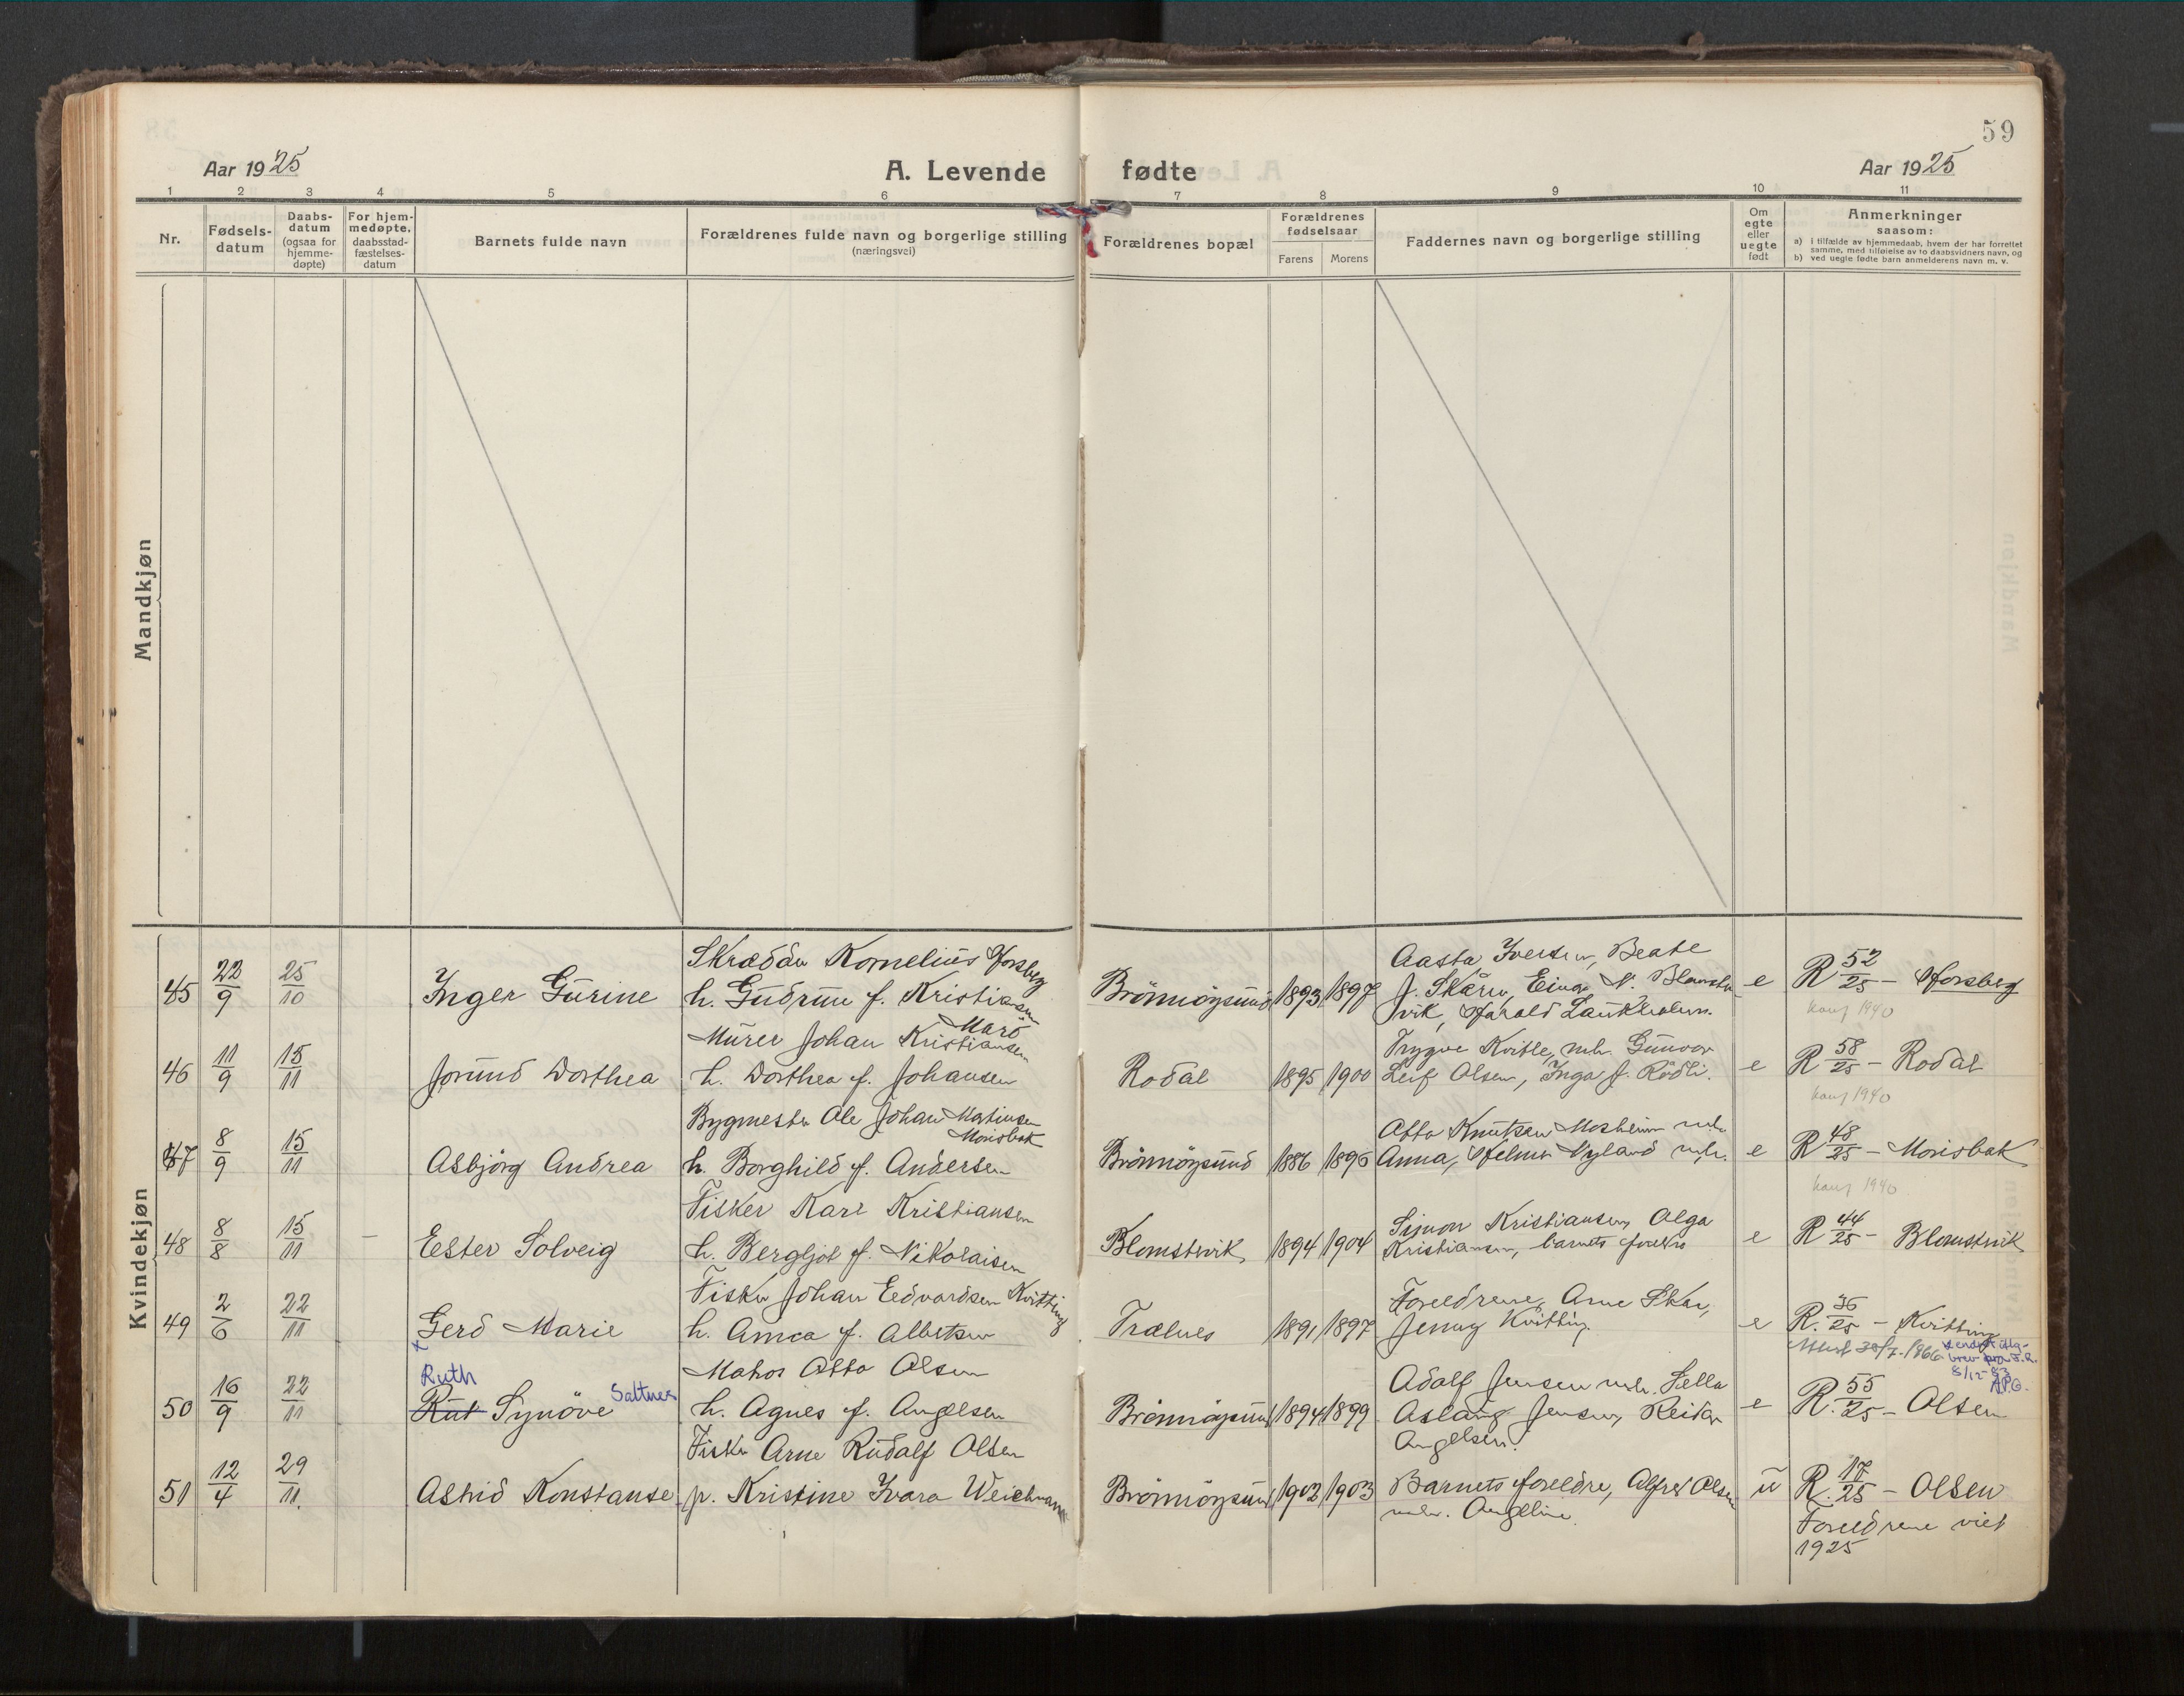 59
Aar 1925
A. Levende fødte
Aar 1925
1 2 3 4 5 6 7 8 9 10 11
Nr.
Fødsels-
datum
Daabs-
datum
(ogsaa for
hjemme-
døpte)
For hjem-
medøpte,
daabsstad-
fæstelses-
datum
Barnets fulde navn
Forældrenes fulde navn og borgerlige stilling
(næringsvei)
Forældrenes bopæl
Forældrenes
fødselsaar
Farens Morens
Faddernes navn og borgerlige stilling
Om
egte
eller
uegte
født
Anmerkninger
saasom:
a) i tilfælde av hjemmedaab, hvem der har forrettet
samme, med tilføielse av to daabsvidners navn, og
b) ved uegte fødte barn anmelderens navn m. v.
Mandkjøn
Kvindekjøn
45 22/9 25/10 Inger Gurine
Skrædder Kornelius Forsberg
h. Gudrun f. Kristiansen
Brönnöysund 1893 1897
Aasta Iversen, Beate
J. Skaren, Einar N.
vik, Harald
e R 52/25 – Forsberg
konf 1940
46 11/9 15/11 Jorund Dorthea
Murer Johan Kristiansen
h. Dorthea f. Johansen
Rodal 1895 1900
Trygve Kvitle, mh. Gunvor
Leif Olsen, Inga J. Rödli.
e R 58/25 – Rodal
konf 1940
47 8/9 15/11 Asbjörg Andrea
Bygmester Ole Johan Matiusen
Morisbak
h. Borghild f. Andersen
Brönnöysund 1886 1895
Otto Knutsen Mosheim mh.
Anna, Helmer Nyland mh.
e R 48/25 – Morisbak
konf 1940
48 8/8 15/11 – Ester Solveig
Fisker Karl Kristiansen
h. Bergljot f. Nikolaisen
Blomstvik 1894 1904
Simon Kristiansen, Olga
Kristiansen, barnets foreldre
e R 44/25 – Blomstvik
49 2/6 22/11 Gerd Marie
Fisker Johan Edvardsen Kvitting
h. Anna f. Albertsen
Trælnes 1891 1897
Foreldrene, Arne Skar,
Jenny Kvitting.
e R. 36/25 – Kvitting
50 16/9 22/11 Ruth
Rut Synöve Saltnes
Matros Otto Olsen
h. Agnes f. Angelsen
Brönnöysund 1894 1899
Adolf Jensen mh. Sella
Aslaug Jensen, Reidar
Angelsen.
e R. 55/25 – Olsen
8/12-83
51 12/4 29/11 Astrid Konstanse
Fisker Arne Rudolf Olsen
p. Kristine Ivara Weichmann
Brönnöysund 1902 1903
Barnets foreldre, Alfred Olsen
mh. Angeline
u R. 17/25 – Olsen
Foreldrene viet
1925